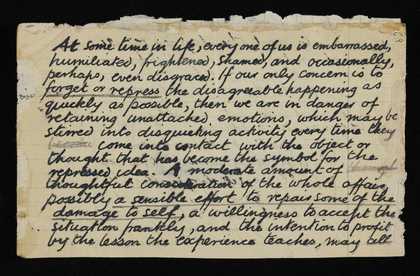 At some time in life, every one of us is embarrassed,
humiliated, frightened, shamed, and occasionally,
perhaps, even disgraced. If our only concern is to
forget or repress the disagreeable happening as
quickly as possible, then we are in danger of
retaining unattached, emotions, which may be
stirred into disquieting activity every time they
come into contact with the object or
thought that has become the symbol for the
repressed idea. A moderate amount of
thoughtful consideration of the whole affair,
possibly a sensible effort to repair some of the
damage to self, a willingness to accept the
situation frankly, and the intention to profit
by the lesson the experience teaches, may all